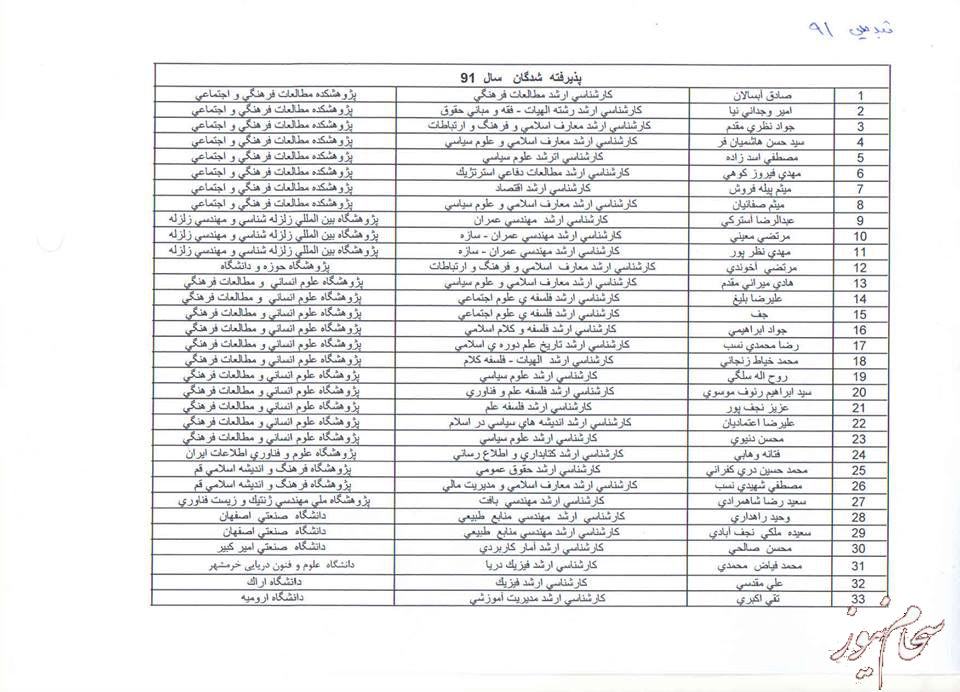 تبديل ٩١
پذيرفته شدگان سال 91
1 صادق آبسالان كارشناسي ارشد مطالعات فرهنگي پژوهشكده مطالعات فرهنگي و اجتماعي
2 امير وجداني نيا كارشناسي ارشد رشته الهيات - فقه و مباني حقوق پژوهشكده مطالعات فرهنگي و اجتماعي
3 جواد نظري مقدم كارشناسي ارشد معارف اسلامي و فرهنگ و ارتباطات پژوهشكده مطالعات فرهنگي و اجتماعي
4 سيد حسن هاشميان فر كارشناسي ارشد معارف اسلامي و علوم سياسي پژوهشكده مطالعات فرهنگي و اجتماعي
5 مصطفي اسد زاده كارشناسي اترشد علوم سياسي پژوهشكده مطالعات فرهنگي و اجتماعي
6 مهدي فيروز كوهي كارشناسي ارشد مطالعات دفاعي استرتژيك پژوهشكده مطالعات فرهنگي و اجتماعي
7 ميثم پيله فروش كارشناسي ارشد اقتصاد پژوهشكده مطالعات فرهنگي و اجتماعي
8 ميثم صفائيان كارشناسي ارشد معارف اسلامي و علوم سياسي پژوهشكده مطالعات فرهنگي و اجتماعي
9 عبدالرضا آستركي كارشناسي ارشد مهندسي عمران پژوهشگاه بين المللي زلزله شناسي و مهندسي زلزله
10 مرتضي معيني كارشناسي ارشد مهندسي عمران - سازه پژوهشگاه بين المللي زلزله شناسي و مهندسي زلزله
11 مهدي نظر پور كارشناسي ارشد مهندسي عمران - سازه پژوهشگاه بين المللي زلزله شناسي و مهندسي زلزله
12 مرتضي آخوندي كارشناسي ارشد معارف اسلامي و فرهنگ و ارتباطات پژوهشگاه حوزه و دانشگاه
13 هادي ميراني مقدم كارشناسي ارشد معارف اسلامي و علوم سياسي پژوهشگاه علوم انساني و مطالعات فرهنگي
14 عليرضا بليغ كارشناسي ارشد فلسفه ي علوم اجتماعي پژوهشگاه علوم انساني و مطالعات فرهنگي
15 جف كارشناسي ارشد فلسفه ي علوم اجتماعي پژوهشگاه علوم انساني و مطالعات فرهنگي
16 جواد ابراهيمي كارشناسي ارشد فلسفه و كلام اسلامي پژوهشگاه علوم انساني و مطالعات فرهنگي
17 رضا محمدي نسب كارشناسي ارشد تاريخ علم دوره ي اسلامي پژوهشگاه علوم انساني و مطالعات فرهنگي
18 محمد خياط زنجاني كارشناسي ارشد الهيات - فلسفه كلام پژوهشگاه علوم انساني و مطالعات فرهنگي
19 روح اله سلگي كارشناسي ارشد علوم سياسي پژوهشگاه علوم انساني و مطالعات فرهنگي
20 سيد ابراهيم رئوف موسوي كارشناسي ارشد فلسفه علم و فناوري پژوهشگاه علوم انساني و مطالعات فرهنگي
21 عزيز نجف پور كارشناسي ارشد فلسفه علم پژوهشگاه علوم انساني و مطالعات فرهنگي
22 عليرضا اعتماديان كارشناسي ارشد انديشه هاي سياسي در اسلام پژوهشگاه علوم انساني و مطالعات فرهنگي
23 محسن دنيوي كارشناسي ارشد علوم سياسي پژوهشگاه علوم انساني و مطالعات فرهنگي
24 فتانه وهابي كارشناسي ارشد كتابداري و اطلاع رساني پژوهشگاه علوم و فناوري اطلاعات ايران
25 محمد حسين دري كفراني كارشناسي ارشد حقوق عمومي پژوهشگاه فرهنگ و انديشه اسلامي قم
26 مصطفي شهيدي نسب كارشناسي ارشد معارف اسلامي و مديريت مالي پژوهشگاه فرهنگ و انديشه اسلامي قم
27 سعيد رضا شاهمرادي كارشناسي ارشد مهندسي بافت پژوهشگاه ملي مهندسي ژنتيك و زيست فناوري
28 وحيد راهداري كارشناسي ارشد مهندسي منابع طبيعي دانشگاه صنعتي اصفهان
29 سعيده ملكي نجف آبادي كارشناسي ارشد مهندسي منابع طبيعي دانشگاه صنعتي اصفهان
30 محسن صالحي كارشناسي ارشد آمار كاربردي دانشگاه صنعتي امير كبير
31 محمد فياض محمدي كارشناسي ارشد فيزيك دريا دانشگاه علوم و فنون دريايی خرمشهر
32 علي مقدسي كارشناسي ارشد فيزيك دانشگاه اراك
33 تقي اكبري كارشناسي ارشد مديريت آموزشي دانشگاه اروميه
سحام نیوز